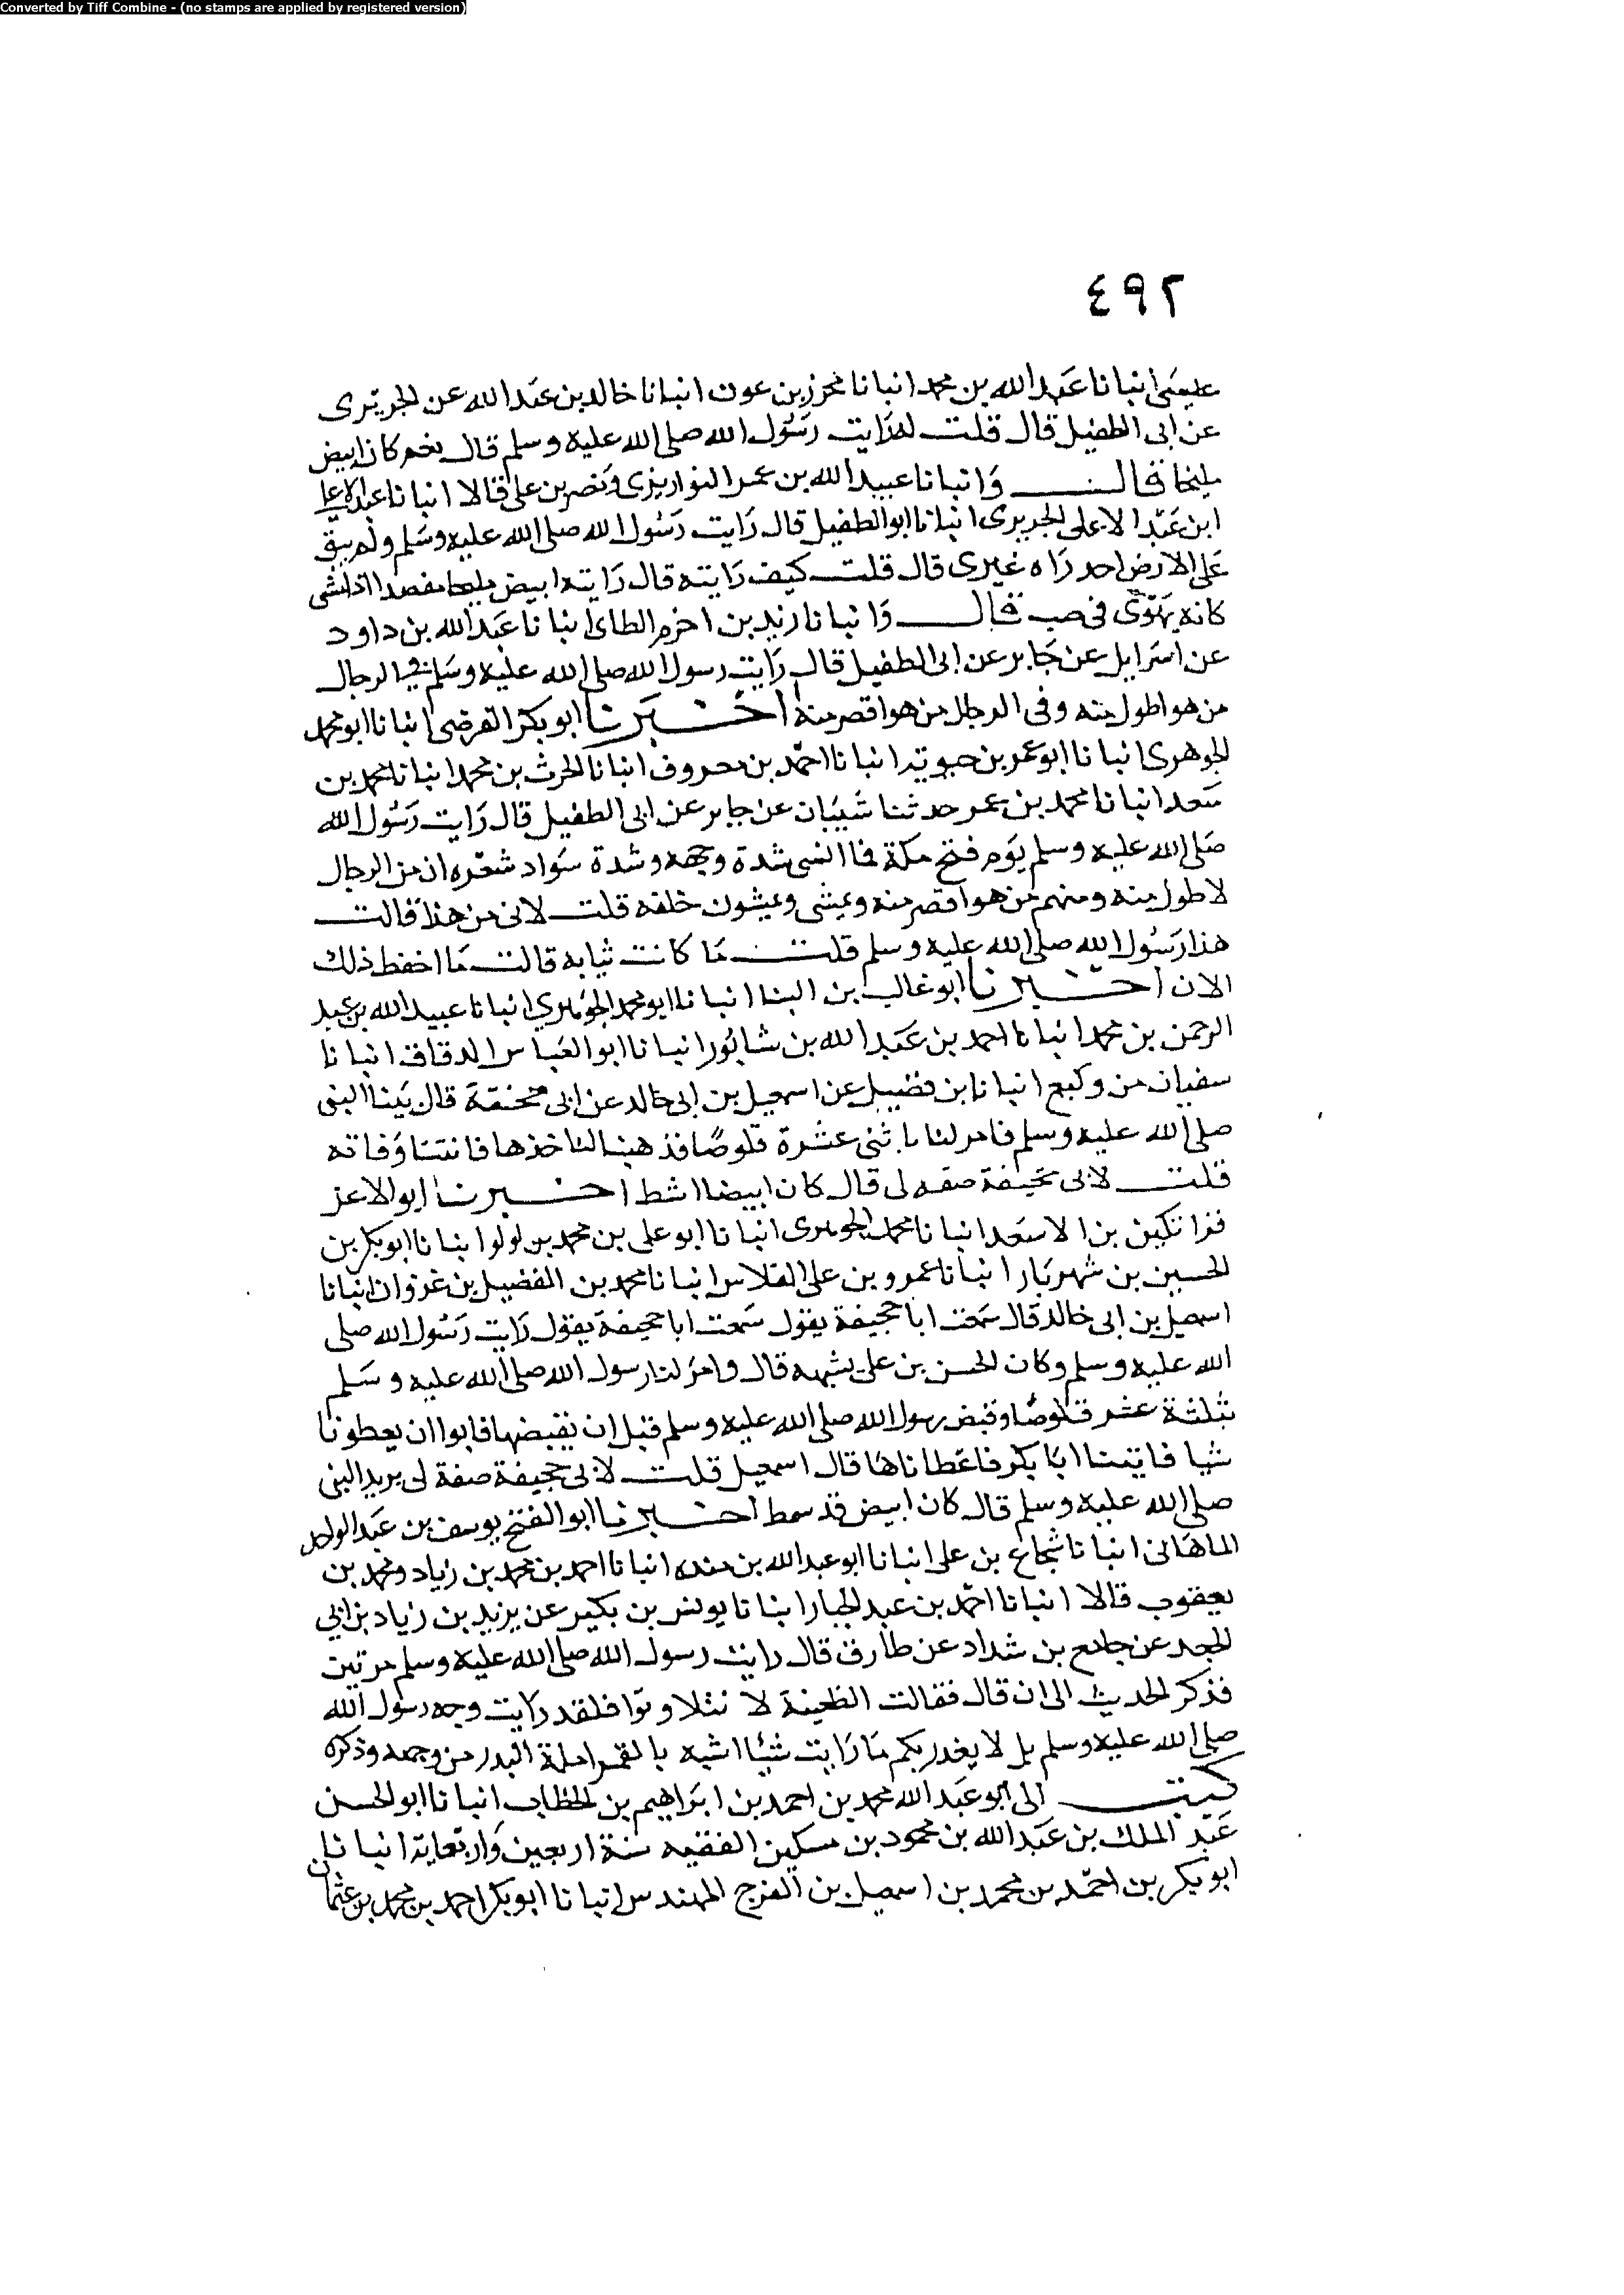 Converted by Tiff Combine - (no stamps are applied by registered version)
٤٩٢
عيسى انبانا عبد الله بن محمد انبانا محرز بن عون انبانا خالد بن عبد الله عن الجريرى
عن ابى الطفيل قال قلت له رايت رسول الله صلى الله عليه وسلم قال نعم كان ابيض
مليحا قال وانبانا عبيد الله بن عمر القواريرى ونصر بن على قالا انبانا عبد الاعلى
ابن عبد الاعلى الجريرى انبانا ابو الطفيل قال رايت رسول الله صلى الله عليه وسلم ولم يبق
على الارض احد راه غيرى قال قلت كيف رايته قال رايته ابيض مليحا مقصدا اذا مشى
كانه يهوى فى صبب قال وانبانا زيد بن اخزم الطاى انبانا عبد الله بن داود
عن اسرايل عن جابر عن ابى الطفيل قال رايت رسول الله صلى الله عليه وسلم فى الرجال
من هو اطول منه وفى الرجال من هو اقصر منه اخبرنا ابو بكر الفرضى انبانا ابو محمد
الجوهرى انبانا ابو عمر بن حيويه انبانا احمد بن معروف انبانا الحرث بن محمد انبانا محمد بن
سعد انبانا محمد بن عمر حدثنا شيبان عن جابر عن ابى الطفيل قال رايت رسول الله
صلى الله عليه وسلم يوم فتح مكة فما انسى شدة وجهه وشدة سواد شعره ان من الرجال
لاطول منه ومنهم من هو اقصر منه ويمشى ويمشون خلفه قلت لامى من هذا قالت
هذا رسول الله صلى الله عليه وسلم قلت ما كانت ثيابه قالت ما احفظ ذلك
الان اخبرنا ابو غالب بن البنا انبانا ابو محمد الجوهري انبانا عبيد الله بن عبد
الرحمن بن محمد انبانا احمد بن عبد الله بن شابور انبانا ابو العباس الدقاق انبانا
سفيان من وكيع انبانا بن فضيل عن اسمعيل بن ابى خالد عن ابى قال بينا النبى
صلى الله عليه وسلم فامر لنا باثنى عشرة قلوصا فذهبنا لناخذها فاتتنا وفاته
قلت لابى جحيفة صفه لى قال كان ابيضا اشط اخبرنا ابو الاعز
قراتكين بن الاسعد انبانا محمد الجوهرى انبانا ابو على بن محمد بن لولوا بنانا ابو بكر بن
الحسين بن شهريار انبانا عمرو بن على الفلاس انبانا محمد بن الفضيل بن غزوان انبانا
اسمعيل بن ابى خالد قال سمعت ابا جحيفة يقول سمعت ابا جحيفة يقول رايت رسول الله صلى
الله عليه وسلم وكان الحسن بن على يشبهه قال وامر لنا رسول الله صلى الله عليه وسلم
بثلثة عشر قلوصا وقبض رسول الله صلى الله عليه وسلم قبل ان نقبضها فابوا ان يعطونا
شيا فاتينا ابا بكر فاعطاناها قال اسمعيل قلت لابى جحيفة صفة لى يريد النبى
صلى الله عليه وسلم قال كان ابيض قد سمط اخبرنا ابو الفتح يوسف بن عبد الواحد
الماهانى انبانا شجاع بن على انبانا ابو عبد الله بن منده انبانا احمد بن محمد بن زياد ومحمد بن
يعقوب قالا انبانا احمد بن عبد الجبار ابنانا يونس بن بكير عن يزيد بن زياد بن ابي
الجعد عن جامع بن شداد عن طارق قال رايت رسول الله صلى الله عليه وسلم مرتين
فذكر الحديث الى ان قال فقالت الظعينة لا تلاوموا فلقد رايت وجه رسول الله
صلى الله عليه وسلم بل لا يغدر بكم ما رايت شيئا اشبه بالقمر ليلة البدر من وجهه وذكره
كتب الى ابو عبد الله محمد بن احمد بن ابراهيم بن الخطاب انبانا ابو الحسن
عبد الملك بن عبد الله بن محمود بن مسكين الفقيه سنة اربعين واربعماية انبانا
ابو بكر بن احمد بن محمد بن اسمعيل بن الفرج المهندس انبانا ابو بكر احمد بن محمد بن عثمان